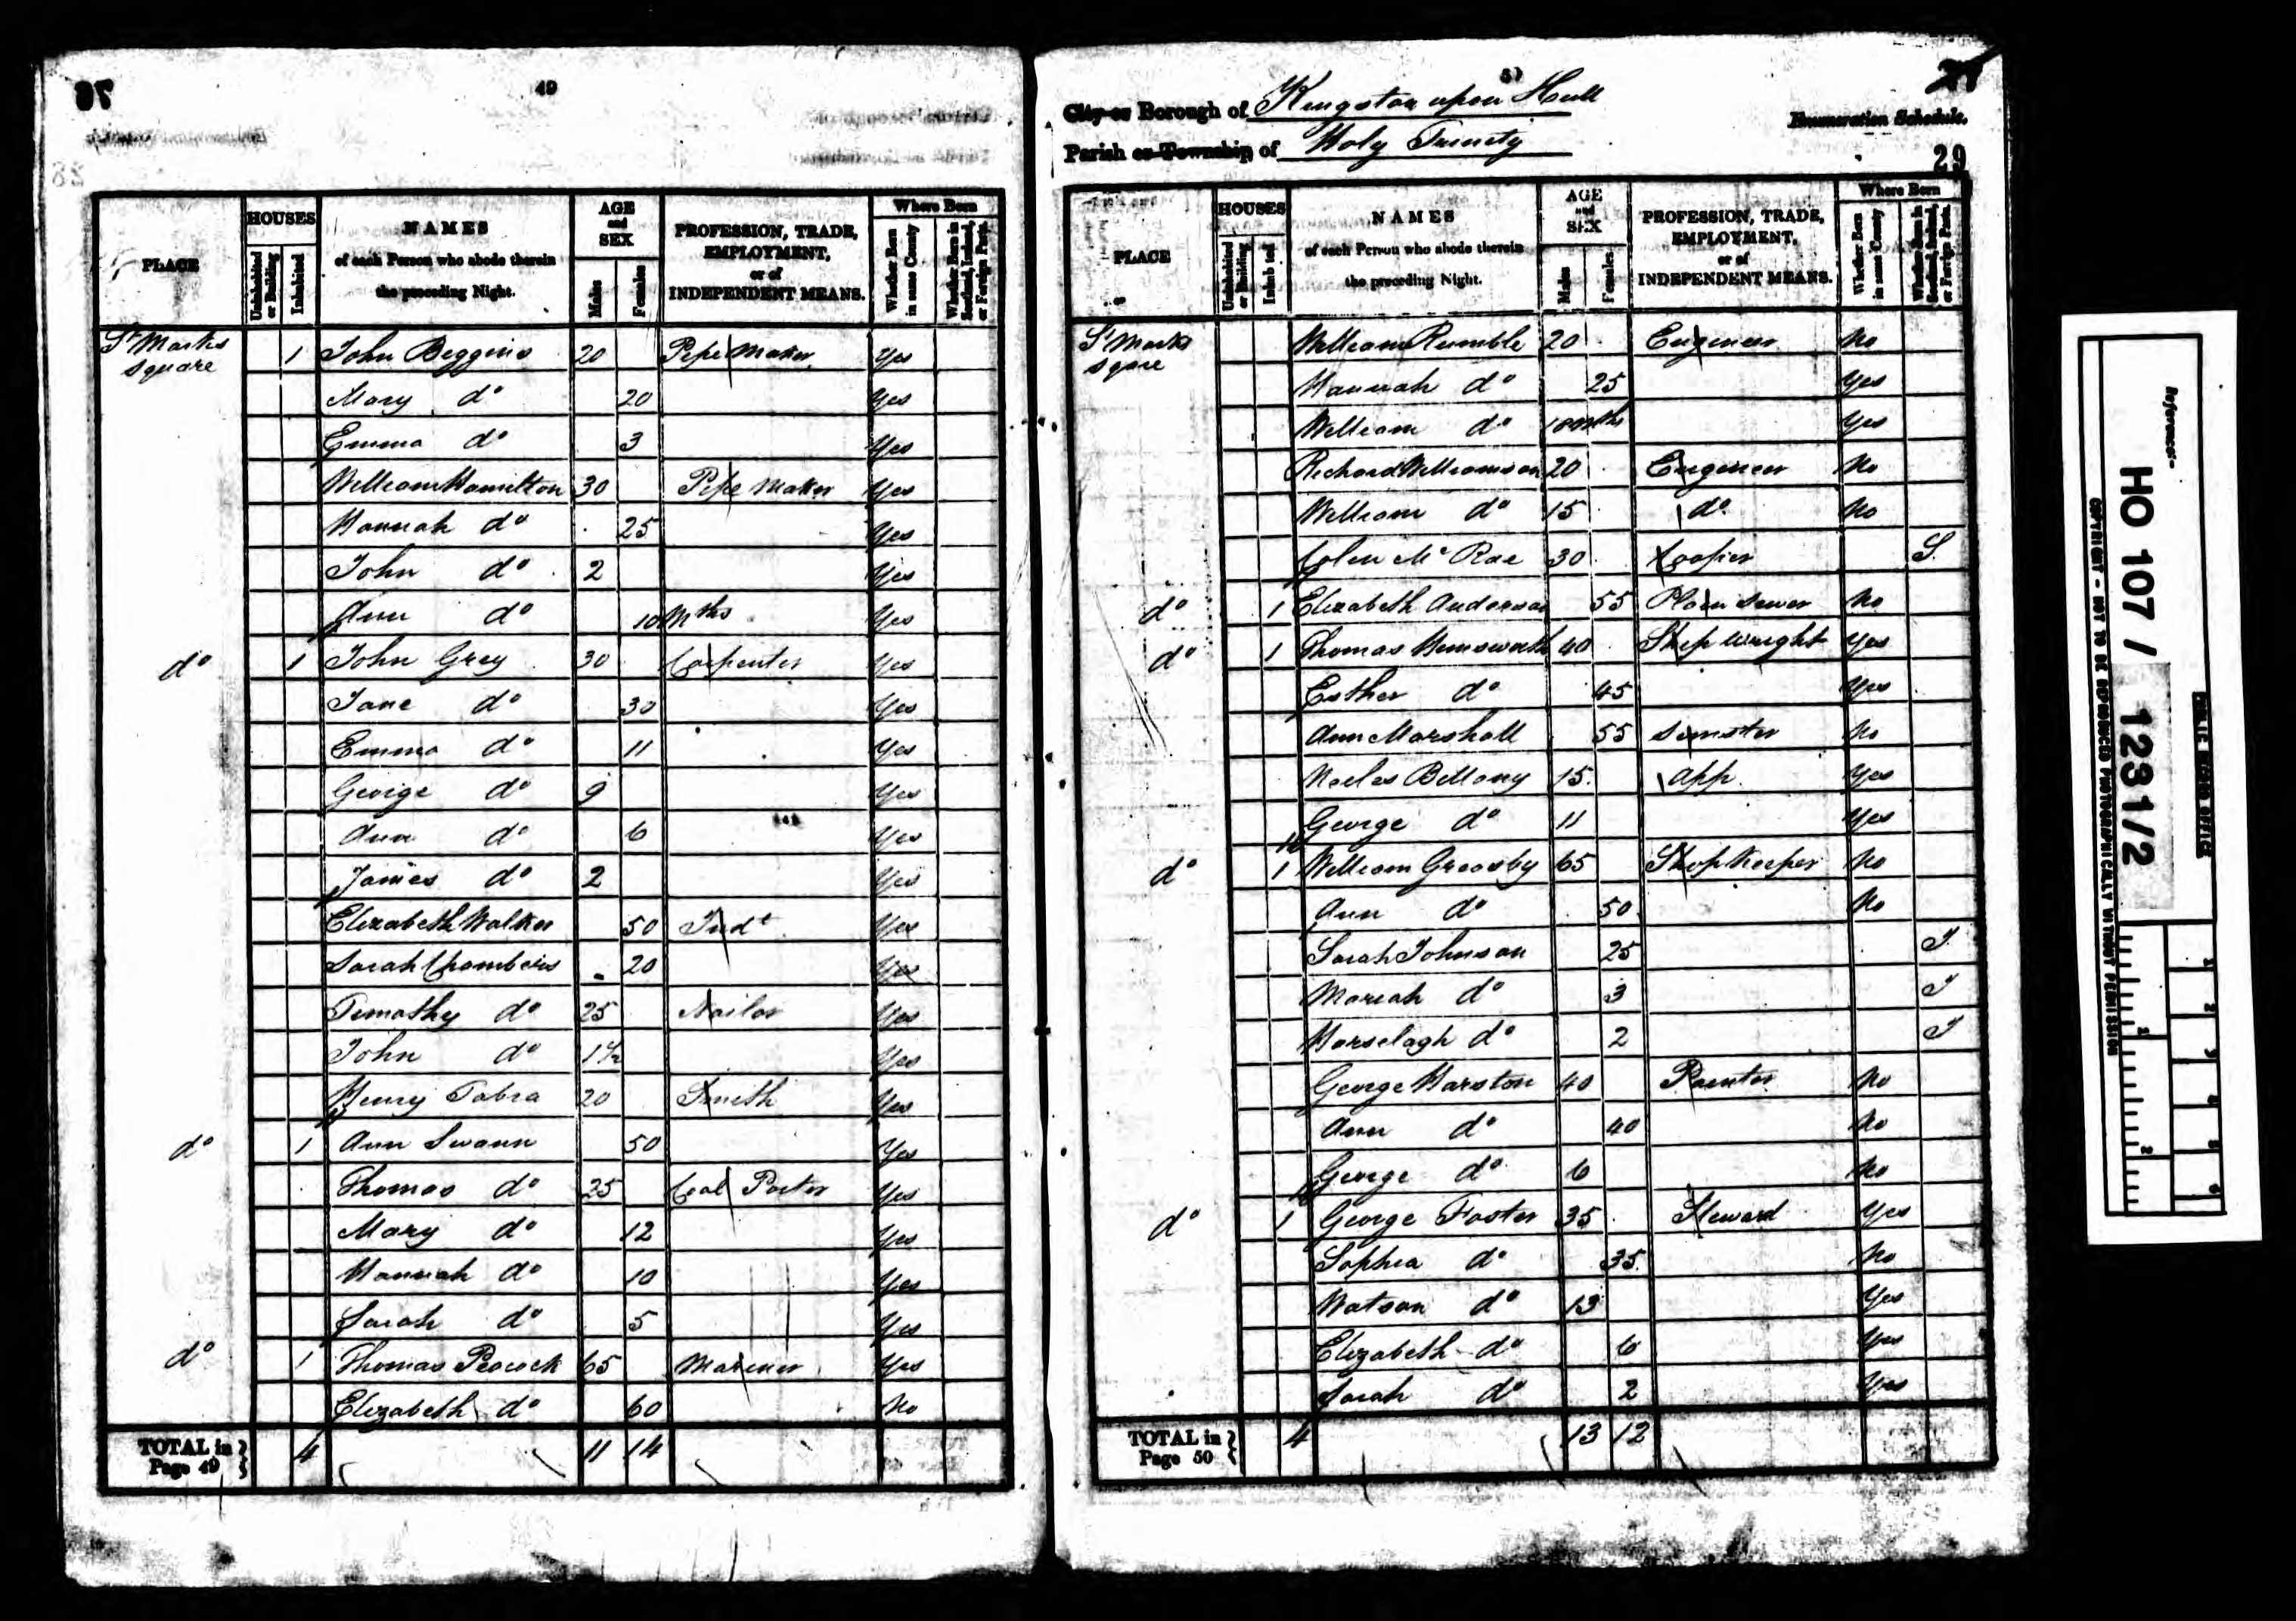 49
HOUSES
NAMES
AGE
and
SEX
PROFESSION, TRADE,
EMPLOYMENT,
or of
INDEPENDENT MEANS.
Where Born
PLACE
Uninhabited or Building
Inhabited
of each Person who abode therein
the preceding Night.
Males
Females
Whether Born in same County
Whether Born in Scotland, Ireland, or Foreign Parts.
St Marks square 1 John Beggins 20 Pipe Maker Yes
Mary do 20 Yes
Emma do 3 Yes
William Hamilton 30 Pipe Maker Yes
Hannah do 25 Yes
John do 2 Yes
Ann do 10 Mths Yes
do 1 John Grey 30 Carpenter Yes
Jane do 30 Yes
Emma do 11 Yes
George do 9 Yes
Ann do 6 Yes
James do 2 Yes
Elizabeth Walker 50 Indt Yes
Sarah Chambers 20 Yes
Timothy do 25 Nailor Yes
John do 1½ Yes
Henry Tabra 20 Smith Yes
do 1 Ann Swann 50 Yes
Thomas do 25 Coal Porter Yes
Mary do 12 Yes
Hannah do 10 Yes
Sarah do 5 Yes
do 1 Thomas Peacock 65 Mariner Yes
Elizabeth do 60 No
TOTAL in Page 49 4 11 14
City or Borough of Kingston upon Hull
Enumeration Schedule.
Parish or Township of Holy Trinity
29
PLACE
HOUSES
Uninhabited or Building
Inhabited
NAMES
of each Person who abode therein
the preceding Night.
AGE
and
SEX
Males
Females
PROFESSION, TRADE,
EMPLOYMENT,
or of
INDEPENDENT MEANS.
Where Born
Whether Born in same County
Whether Born in Scotland, Ireland, or Foreign Parts.
St Marks sqare William Rumble 20 Engineer No
Hannah do 25 Yes
William do 10 Mths Yes
Richard Williamson 20 Engineer No
William do 15 do No
Colin Mc Rae 30 Cooper S.
do 1 Elizabeth Anderson 55 Plain Sewer No
do 1 Thomas Hemsworth 40 Ship Wright Yes
Esther do 45 Yes
Ann Marshall 55 Semster No
Bellamy 15 App. Yes
George do 11 Yes
do 1 William Greasby 65 Shop Keeper No
Ann do 50 No
Sarah Johnson 25 I
Mariah do 3 I
do 2 I
George Harston 40 Painter No
Ann do 40 No
George do 6 No
do 1 George Foster 35 Steward Yes
Sophia do 35 No
Watson do 13 Yes
Elizabeth do 6 Yes
Sarah do 2 Yes
TOTAL in Page 50 4 13 12
Reference:-
HO 107 / 1231/2
COPYRIGHT - NOT TO BE REPRODUCED PHOTOGRAPHICALLY WITHOUT PERMISSION